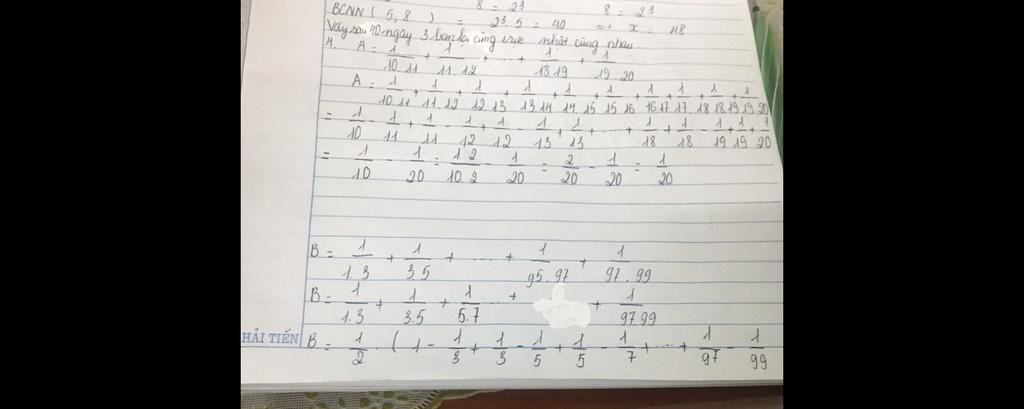 8 = 2³ 8 = 2³
BCNN ( 5, 8 ) = 2³. 5 = 40 => x = 48
Vậy sau 40 ngày 3 bạn lại cùng trực nhật cùng nhau
4. A = 1/10.11 + 1/11.12 + ... + 1/18.19 + 1/19.20
A = 1/10.11 + 1/11.12 + 1/12.13 + 1/13.14 + 1/14.15 + 1/15.16 + 1/16.17 + 1/17.18 + 1/18.19 + 1/19.20
= 1/10 - 1/11 + 1/11 - 1/12 + 1/12 - 1/13 + 1/13 + ... + 1/18 + 1/18 - 1/19 + 1/19 + 1/20
= 1/10 - 1/20 = 1.2/10.2 - 1/20 = 2/20 - 1/20 = 1/20
B = 1/1.3 + 1/3.5 + ... + 1/95.97 + 1/97.99
B = 1/1.3 + 1/3.5 + 1/5.7 ... + + 1/97.99
HẢI TIẾN
B = 1/2 . ( 1 - 1/3 + 1/3 - 1/5 + 1/5 - 1/7 + ... + 1/97 - 1/99